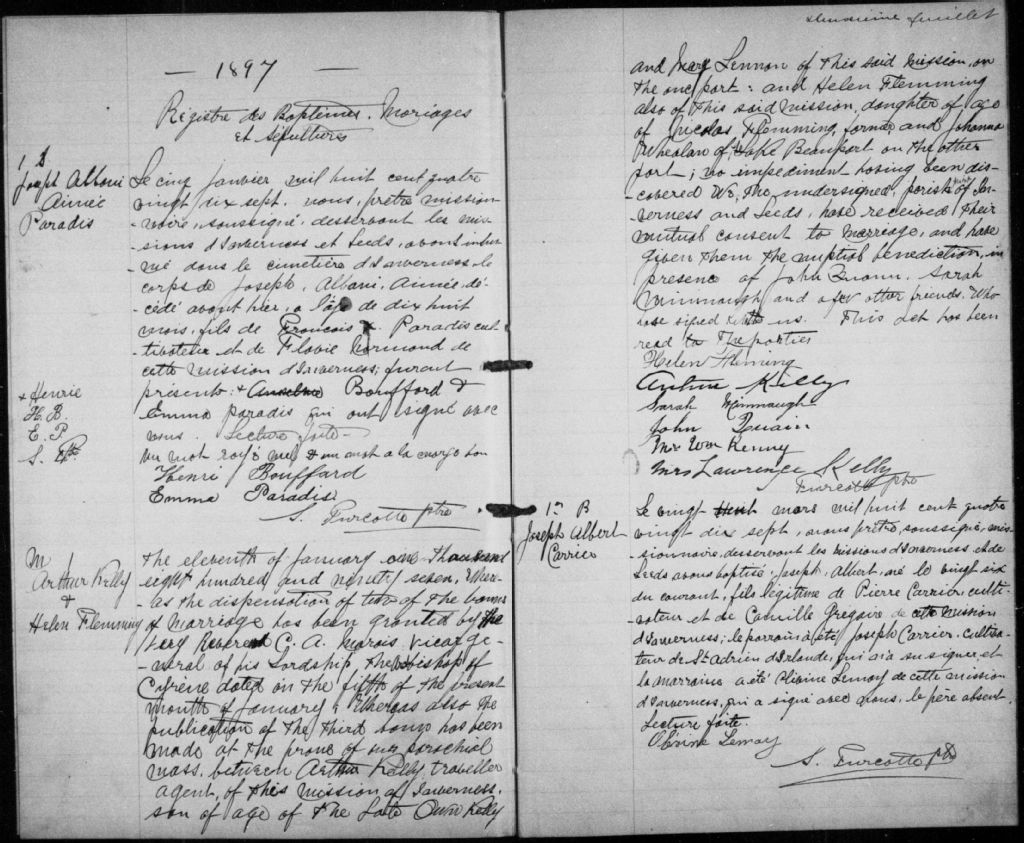 — 1897 —
Registre des Baptêmes. Mariages
et Sépultures
1 S
Joseph Albani
Aimée
Paradis
Le cinq janvier mil huit cent quatre
vingt dix sept, nous, prêtre mission-
-naire, soussigné, desservant les mis-
-sions d'Inverness et Leeds, avons inhu-
-mé dans le cimetière d'Inverness, le
corps de Joseph, Albani, Aimée, dé-
-cédé avant hier, a l'âge de dix huit
mois, fils de François X. Paradis cul-
tivateur et de Flavie Normand de
cette mission d'Inverness; furent
présents: + Anselme Bouffard &
Emma Paradis qui ont signé avec
nous. Lecture faite—
+ Henrie
H. B.
E. P.
S. Ptre
un mot rayé nul & un mot a la marge bon
Henri Bouffard
Emma Paradis
S. Turcotte ptre
M
Arthur Kelly
&
Helen Flemming
The eleventh of January one thousand
eight hundred and ninety seven, Wher-
-as the dispensation of two of the banns
of marriage has been granted by the
Very Reverend C. A. Marois vicar ge-
-neral of his Lordship, the bishop of
Cyrene dated on the fifth of the present
month of January; Whereas also the
publication of the third bann has been
made at the prone of our parochial
mass, between Arthur Kelly, traveller
agent, of this mission of Inverness,
son of age of the late Owen Kelly
deuxième feuillet
and Mary Lennon of this said mission, on
the one part: and Helen Flemming
also of this said mission, daughter of age
of Nicolas Flemming, farmer and Johanna
Whealan of Lake Beauport on the other
part; no impediment having been dis-
-covered We, the undersigned, parish priest of In-
-verness and Leeds, have received their
mutual consent to marriage, and have
given them the nuptial benediction, in
presence of John Duann, Sarah
Mimnaugh and a few other friends. Who
have signed with us. This act has been
read to the parties
Helen Fleming
Arthur Kelly
Sarah Mimnaugh
John Duain
Mrs Wm Kenny
Mrs Lawrence Kelly
Turcotte ptre
1er B
Joseph Albert
Carrier
Le vingt huit mars mil huit cent quatre
vingt dix sept, nous prêtre, soussigné, mis-
-sionnaire, desservant les missions d'Inverness et de
Leeds avons baptisé, Joseph, Albert, né le vingt six
du courant, fils légitime de Pierre Carrier, culti-
-vateur et de Camille Grégoire de cette mission
d'Inverness; le parrain a été Joseph Carrier, cultiva-
-teur de St Adrien d'Irlande, qui n'a su signer, et
la marraine a été Olivine Lemay de cette mission
d'Inverness, qui a signé avec nous, le père absent.
Lecture faite.
Olivine Lemay
S. Turcotte ptre